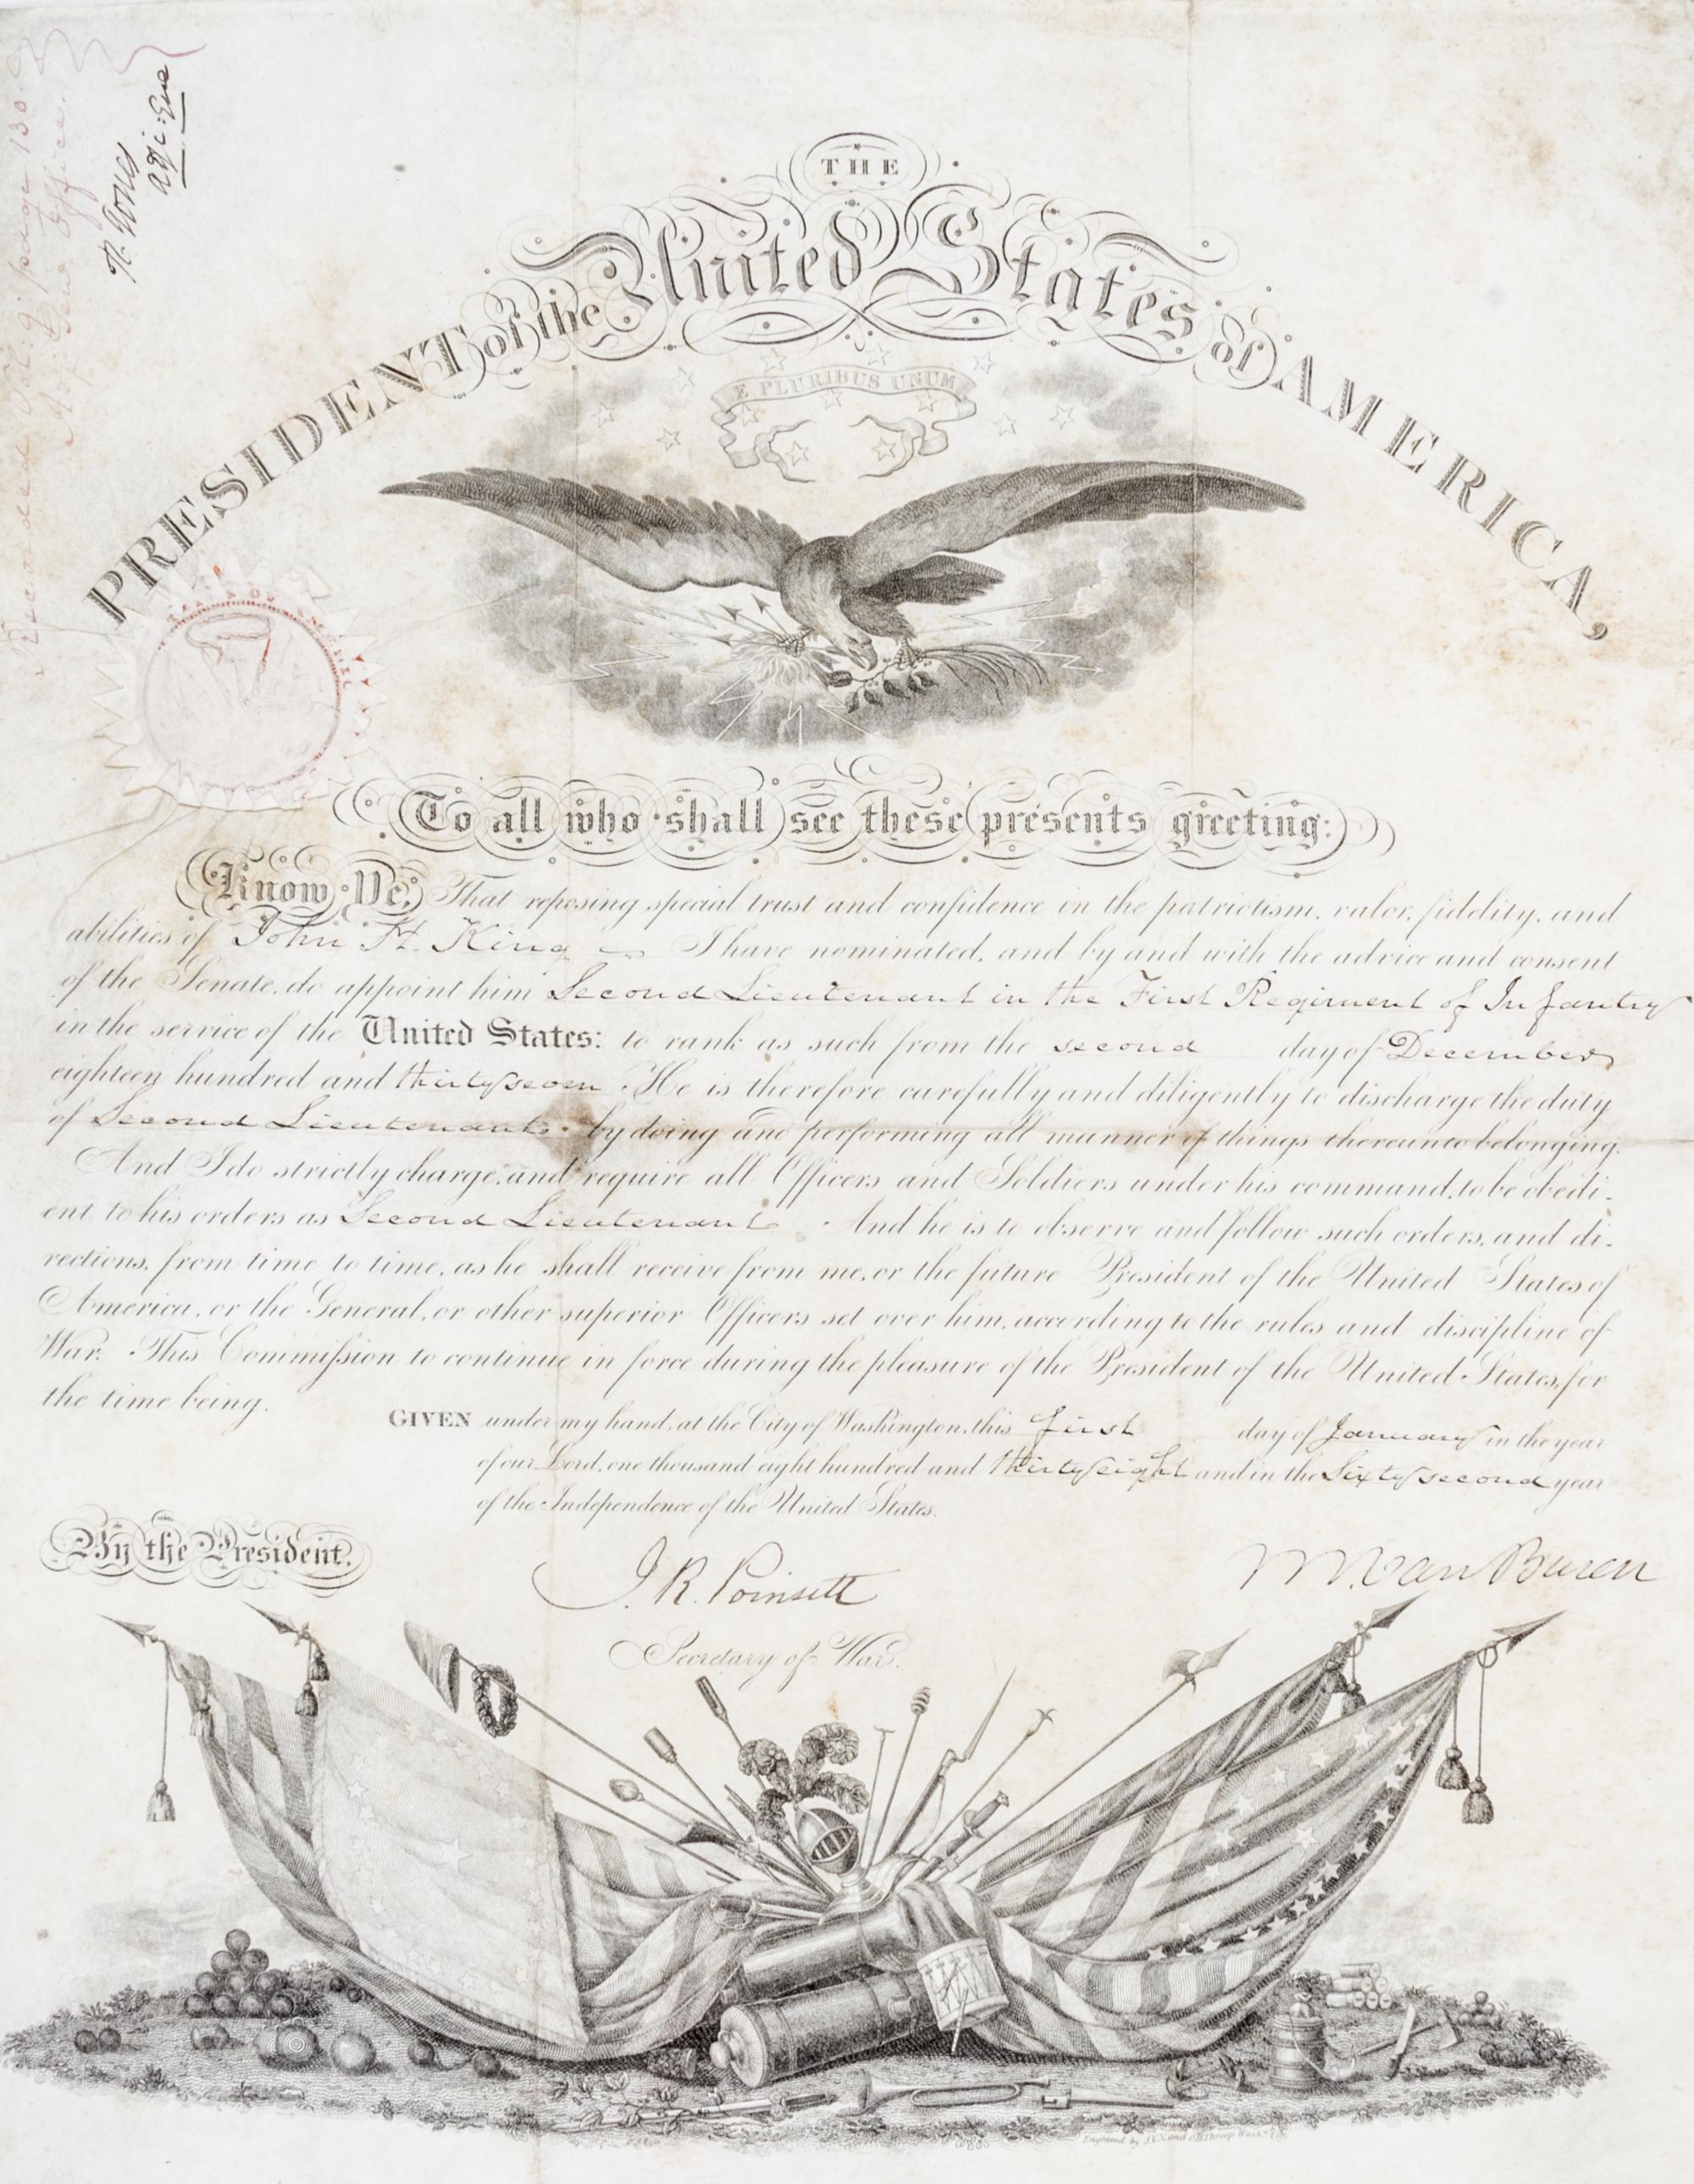 Recorded Vol: 9. page 130.
Adj: Genl. Office.
R. Jones
Adj: Gen
THE
PRESIDENT of the United States of AMERICA,
E PLURIBUS UNUM
To all who shall see these presents greeting:
Know Ye, That reposing special trust and confidence in the patriotism, valor, fidelity, and
abilities of John H. King I have nominated, and by and with the advice and consent
of the Senate, do appoint him Second Lieutenant in the First Regiment of Infantry
in the service of the United States: to rank as such from the second day of December
eighteen hundred and thirty seven He is therefore carefully and diligently to discharge the duty
of Second Lieutenant by doing and performing all manner of things thereunto belonging.
And I do strictly charge, and require all Officers and Soldiers under his command, to be obedi-
ent to his orders as Second Lieutenant. And he is to observe and follow such orders, and di-
rections, from time to time, as he shall receive from me, or the future President of the United States of
America, or the General, or other superior Officers set over him, according to the rules and discipline of
War. This Commission to continue in force during the pleasure of the President of the United States, for
the time being.
GIVEN under my hand, at the City of Washington, this first day of January in the year
of our Lord, one thousand eight hundred and thirty eight and in the Sixty second year
of the Independence of the United States.
By the President,
M. Van Buren
J. R. Poinsett
Secretary of War.
Engraved by